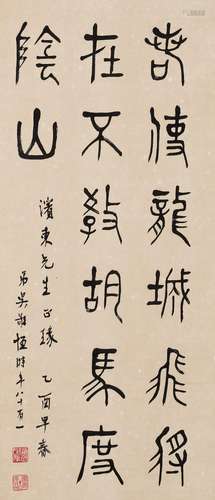 若使龍城飛將
在不教胡馬度
陰山
濱東先生正瑑 乙酉早春
弟吳敬恆時年八十有一